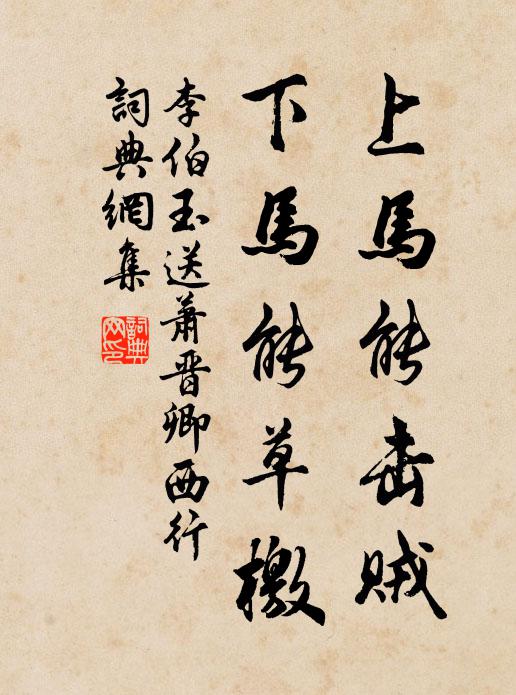 上馬能击賊
下馬能草檄
李伯玉送蕭晋卿西行
詞典網集
詞典網印